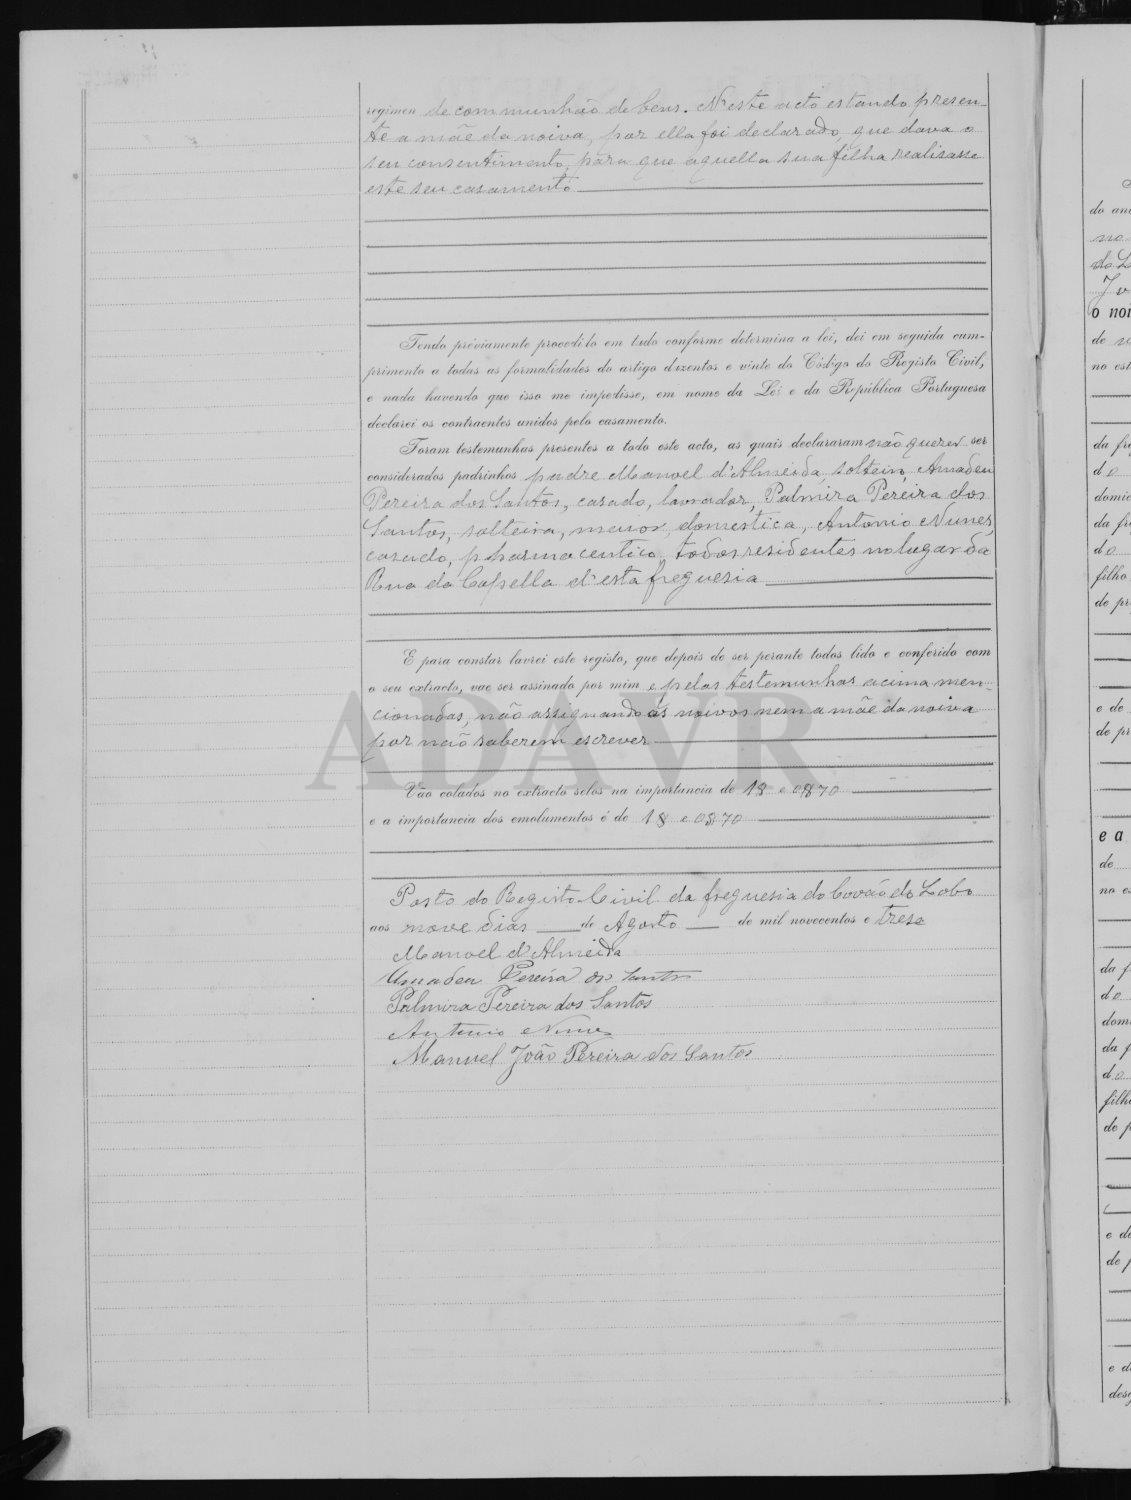 regimen de communhão de bens. N'este acto estando presen-
te a mãe da noiva, por ella foi declarado que dava o
seu consentimento para que aquella sua filha realisasse
este seu casamento
Tendo préviamente procedido em tudo conforme determina a lei, dei em seguida cum-
primento a todas as formalidades do artigo duzentos e vinte do Código do Registo Civil,
e nada havendo que isso me impedisse, em nome da Lei e da República Portuguesa
declarei os contraentes unidos pelo casamento.
Foram testemunhas presentes a todo este acto, as quais declararam não querer ser
considerados padrinhos padre Manoel d'Almeida, solteiro, Amadeu
Pereira dos Santos, casado, lavrador, Palmira Pereira dos
Santos, solteira, menor, domestica, Antonio Nunes,
casado, pharmaceutico todos residentes no lugar da
Rua da Capella d'esta freguesia
E para constar lavrei este registo, que depois de ser perante todos lido e conferido com
o seu extracto, vae ser assinado por mim e pelas testemunhas acima men-
cionadas, não assignando os noivos nem a mãe da noiva
por não saberem escrever
ADAVR
Vão colados no extracto selos na importancia de 1$ e 0$70
e a importancia dos emolumentos é de 1$ e 0$70
Posto do Registo Civil da freguesia do Covão do Lobo
aos nove dias de Agosto de mil novecentos e trese
Manoel d'Almeida
Amadeu Pereira dos Santos
Palmira Pereira dos Santos
Antonio Nunes
Manuel João Pereira dos Santos
do
no
do L
o noi
de
no est
da fre
do
domic
da fr
do
filho
de pr
e de
de pr
e a
de
no e
da f
do
dom
da f
do
filh
de p
e de
de p
e d
desg